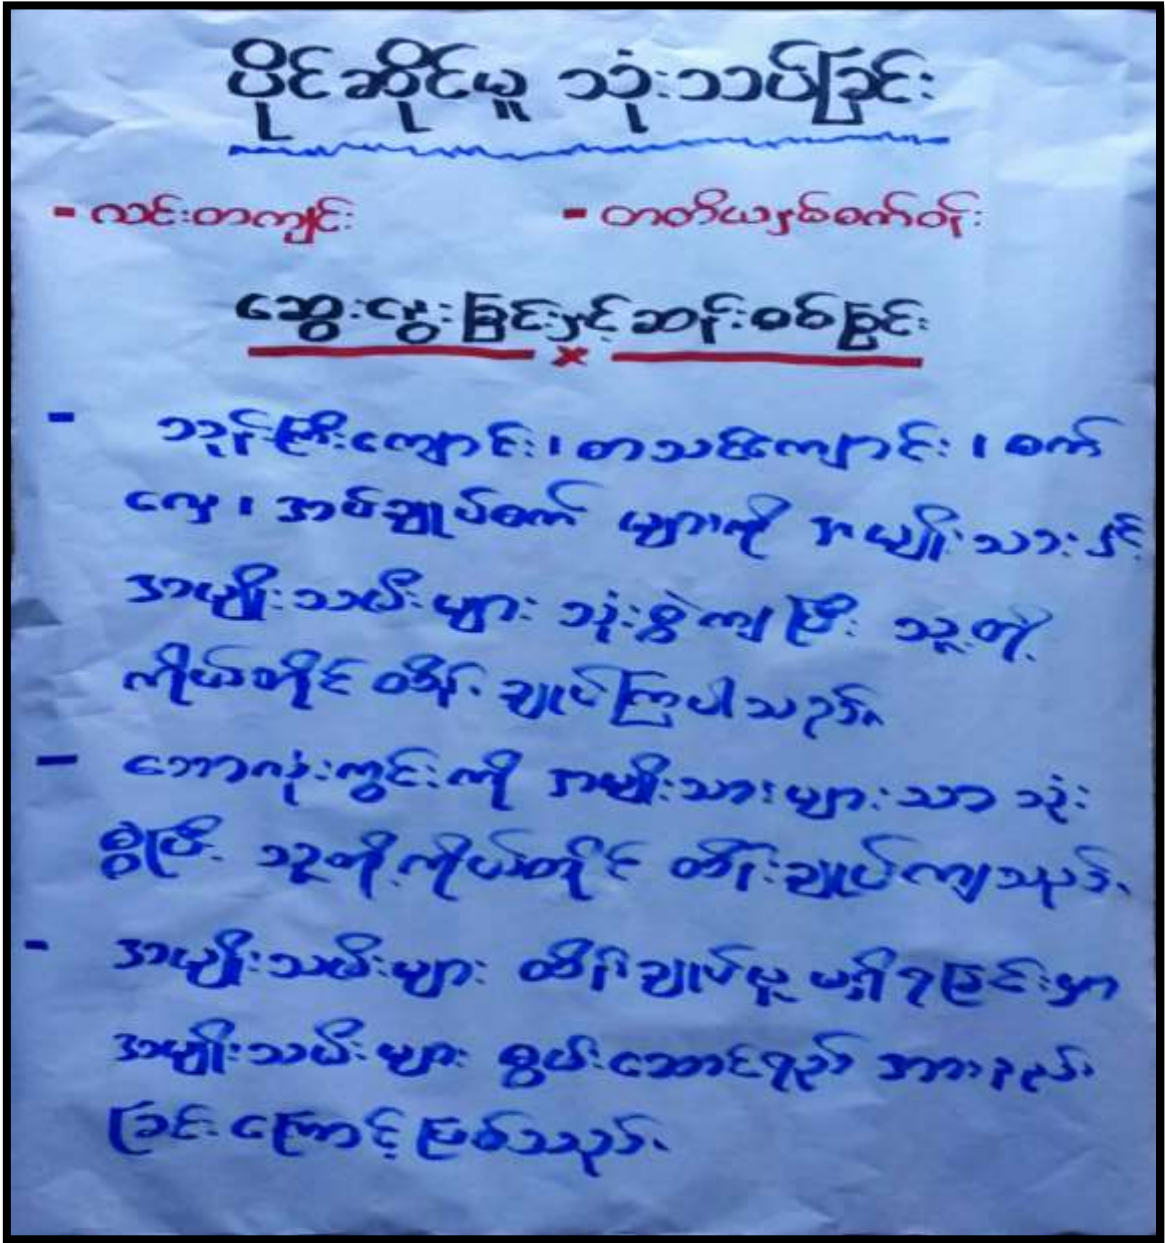 ပိုင်ဆိုင်မှု သုံးသပ်ခြင်း
- လင်းတကျင်း - တတိယနှစ်စက်ဝန်း
ဆွေးနွေးခြင်းနှင့်ဆန်းစစ်ခြင်း
- ဘုန်းကြီးကျောင်း၊ စာသင်ကျောင်း၊ စက်
လှေ၊ အပ်ချုပ်စက် များကို အမျိုးသားနှင့်
အမျိုးသမီးများ သုံးစွဲကျပြီး သူတို့
ကိုယ်တိုင် ထိန်းချုပ်ကြပါသည်။
- ဘောလုံးကွင်းကို အမျိုးသားများသာ သုံး
စွဲပြီး သူတို့ကိုယ်တိုင် ထိန်းချုပ်ကျသည်။
- အမျိုးသမီးများ ထိန်းချုပ်မှု မရှိရခြင်းမှာ
အမျိုးသမီးများ စွမ်းဆောင်ရည် အားနည်း
ခြင်းကြောင့်ဖြစ်သည်။